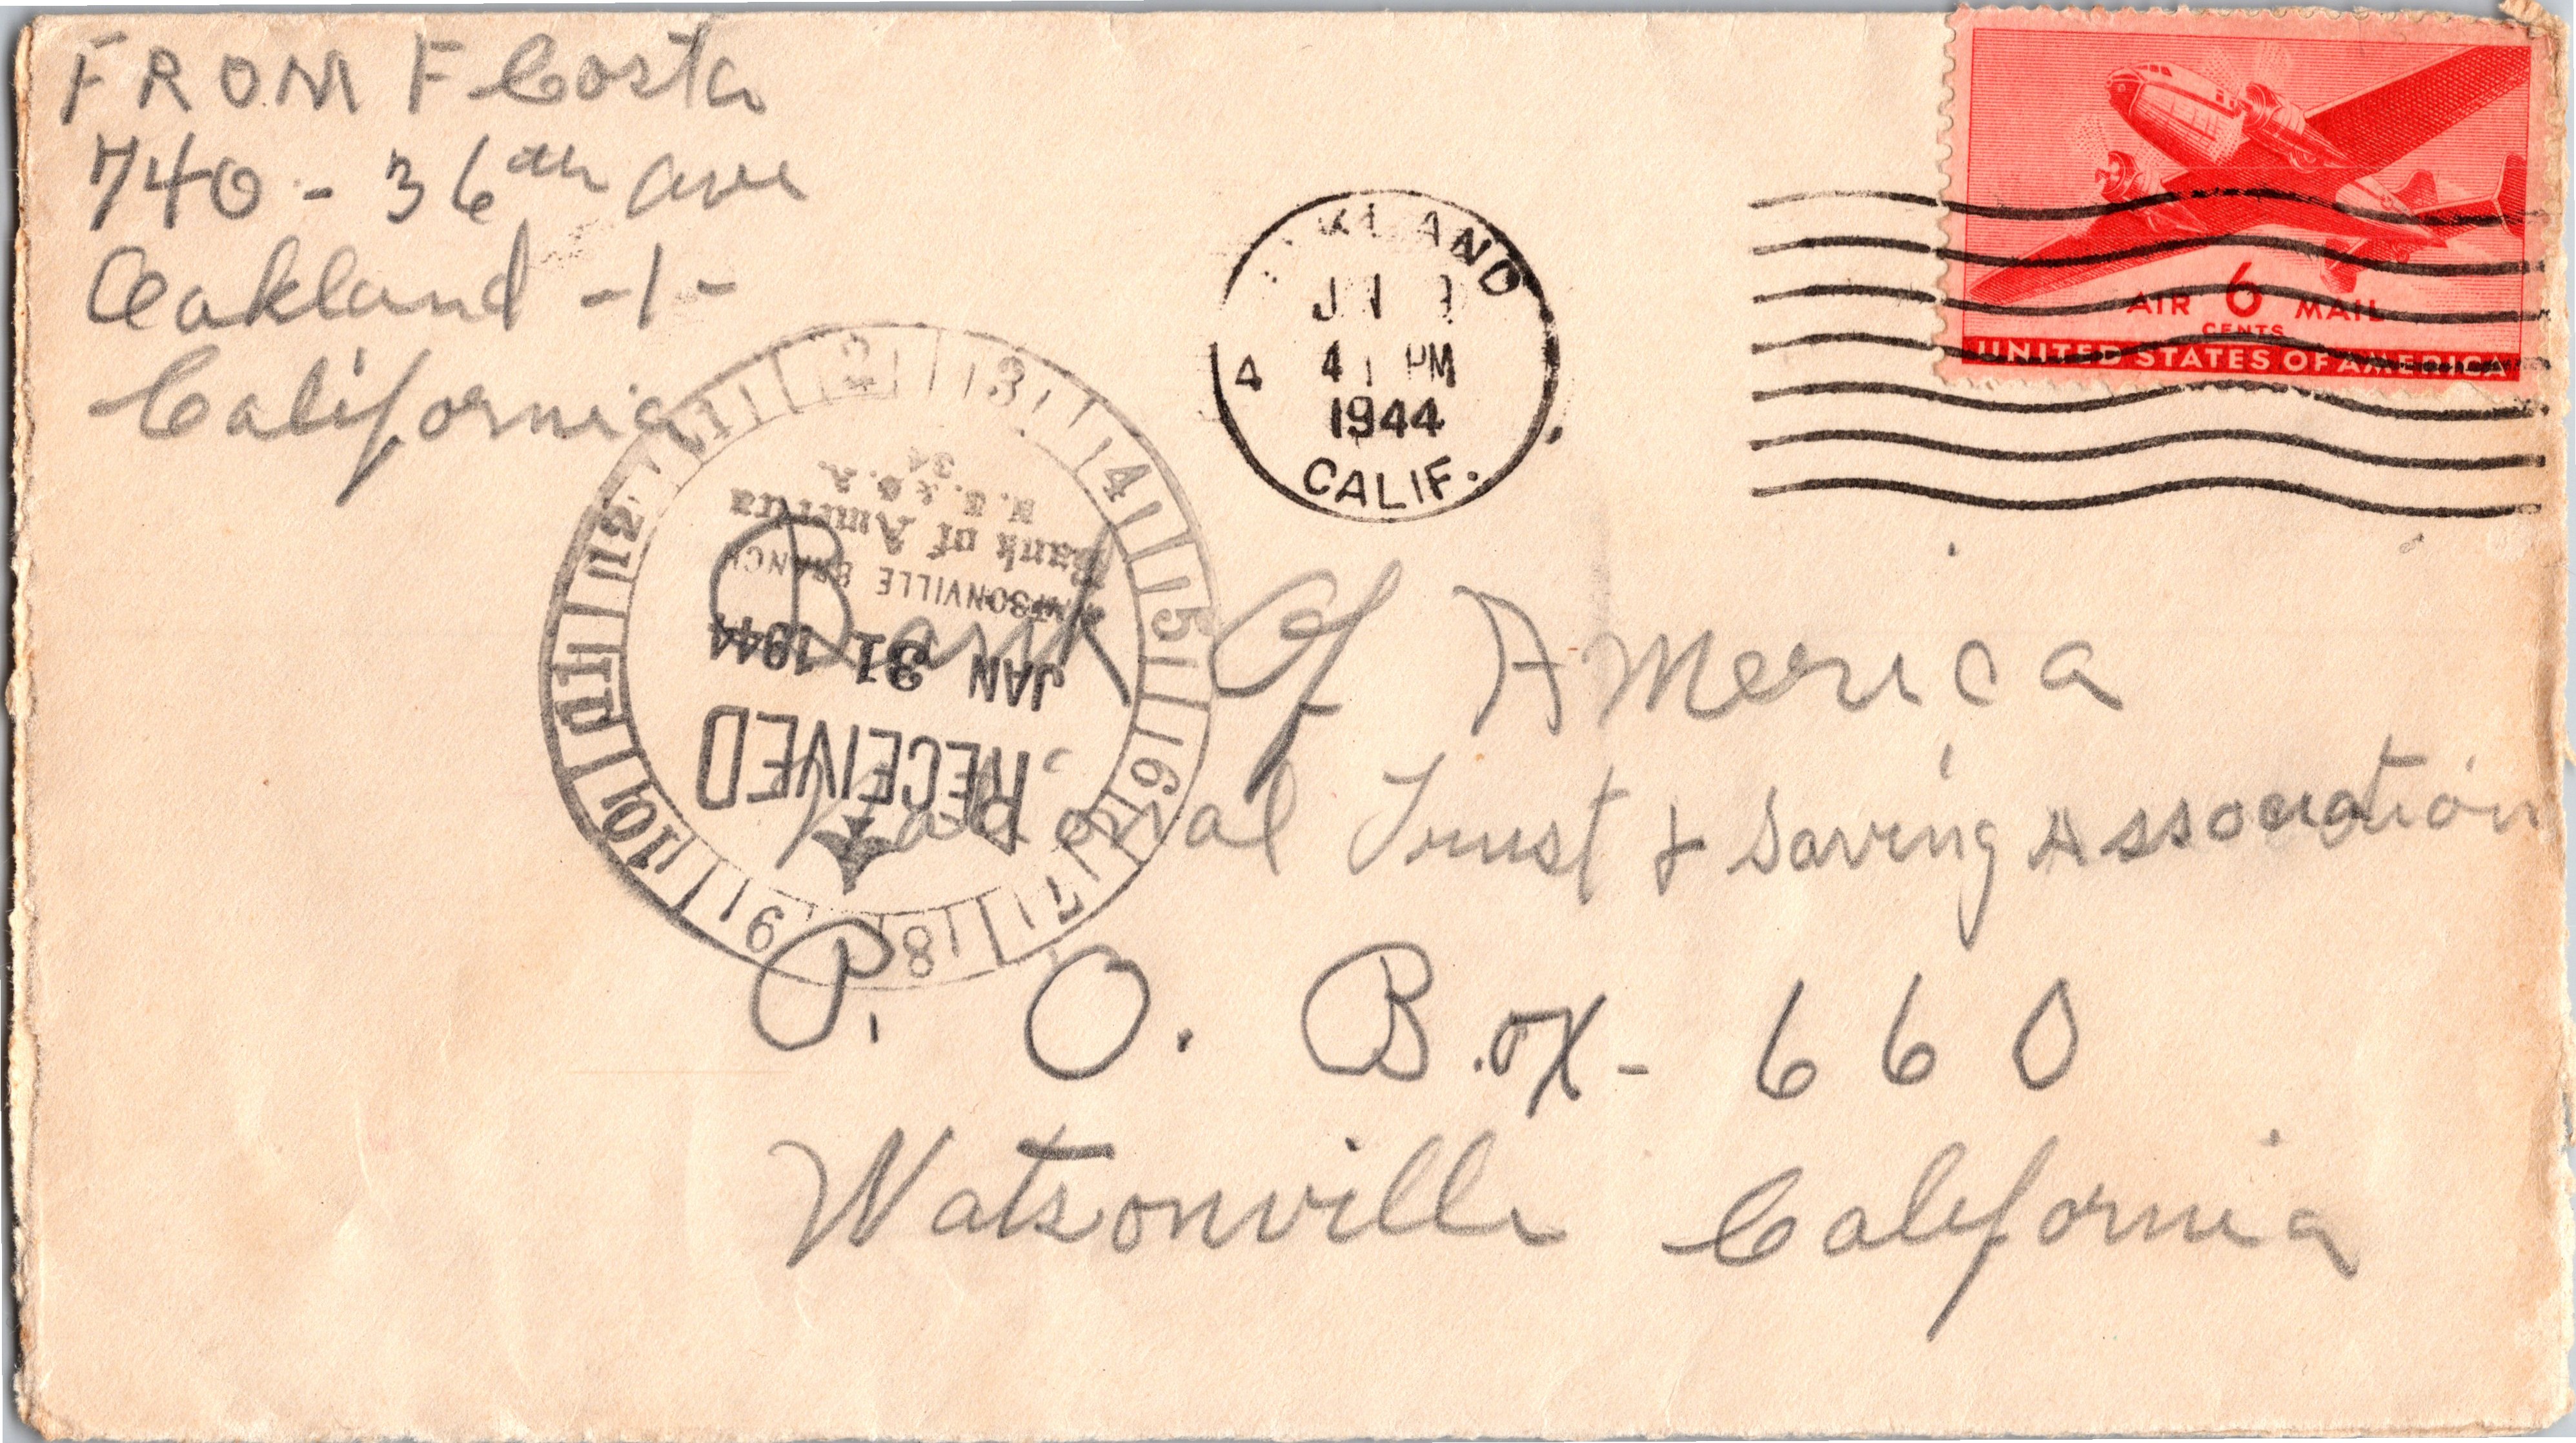 FROM F Costa
740 - 36th ave
Oakland -1-
California
OAKLAND
4 PM
1944
CALIF.
AIR 6 MAIL
CENTS
UNITED STATES OF AMERICA
1 2 3 4 5 6 7 8 9 10 11 12
RECEIVED
JAN 31 1944
WATSONVILLE BRANCH
Bank of America
N.T. & S.A.
Bank Of America
National Trust & Saving Association
P. O. Box - 660
Watsonville California